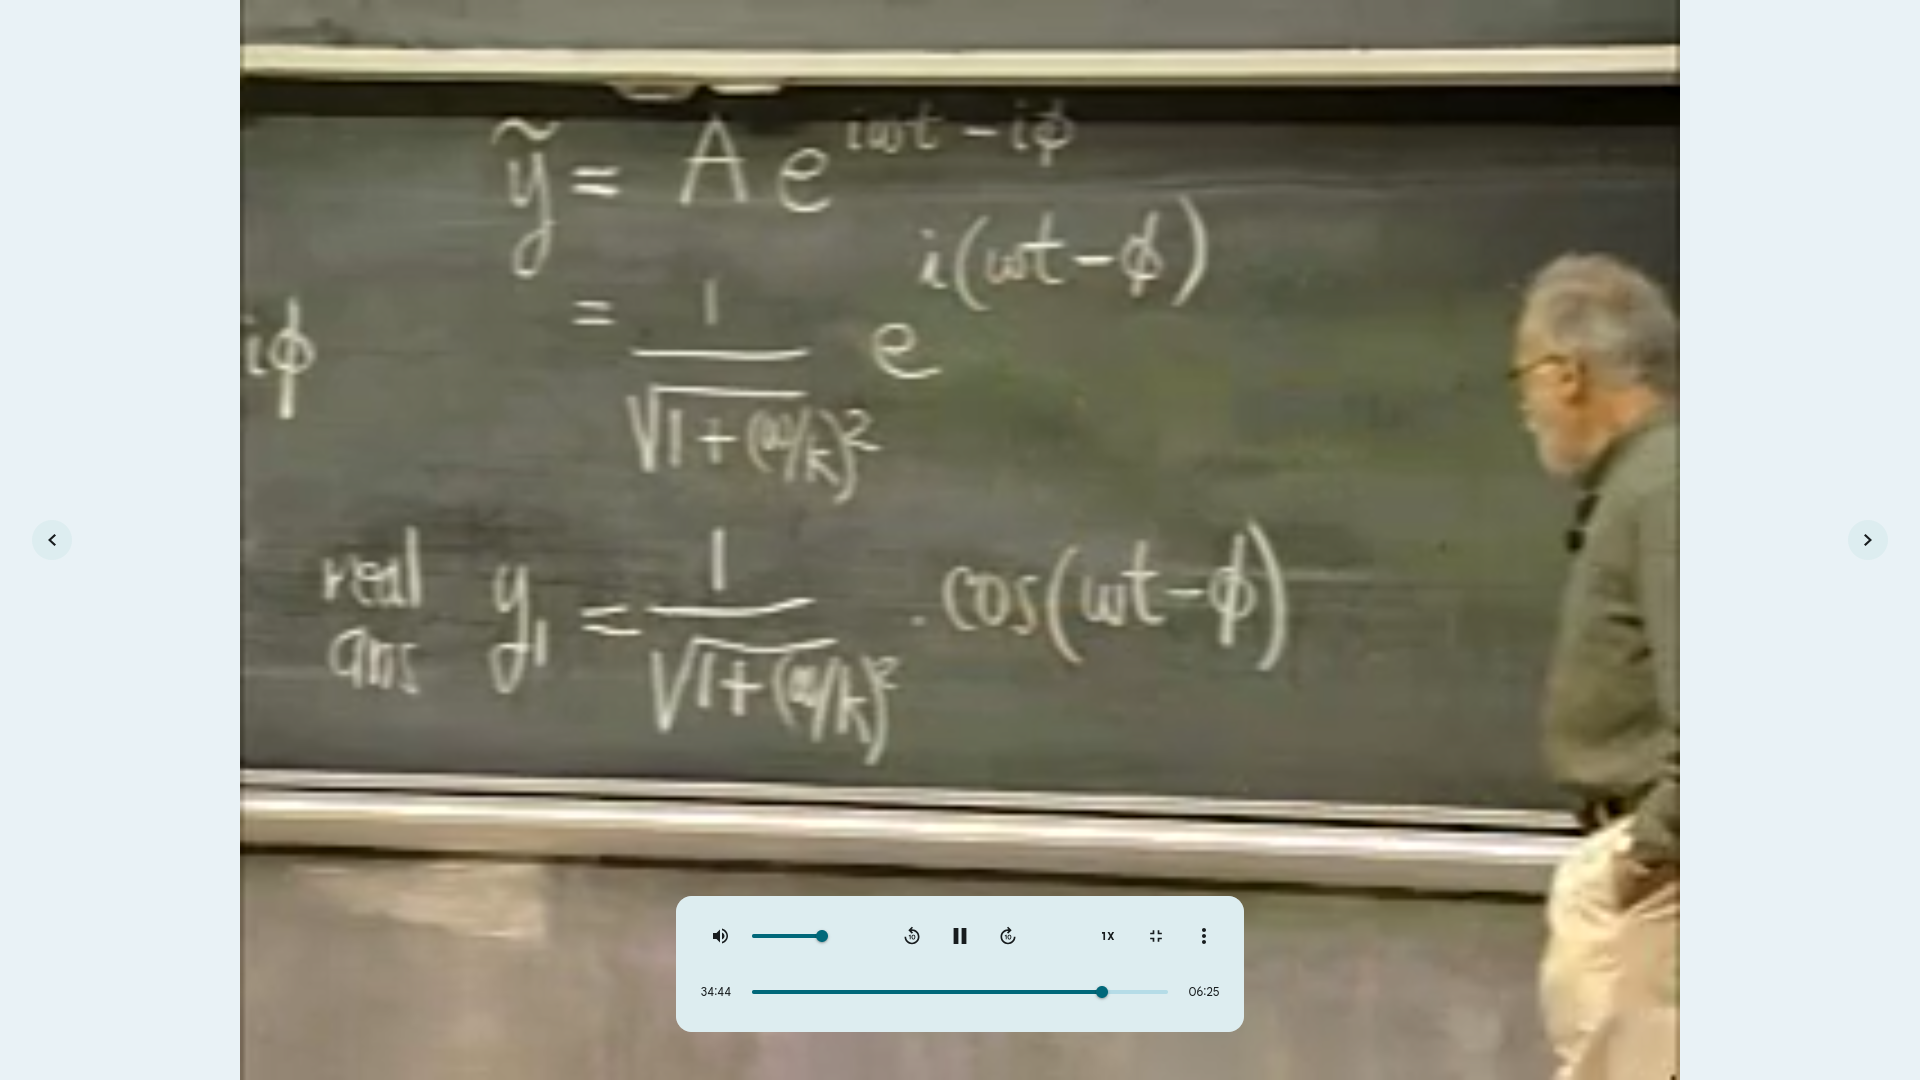 ỹ = A e^{iωt - iϕ}
iϕ
= 1/√(1+(ω/k)²) e^{i(ωt-ϕ)}
real ans y₁ = 1/√(1+(ω/k)²) · cos(ωt-ϕ)
10
10
1X
34:44
06:25